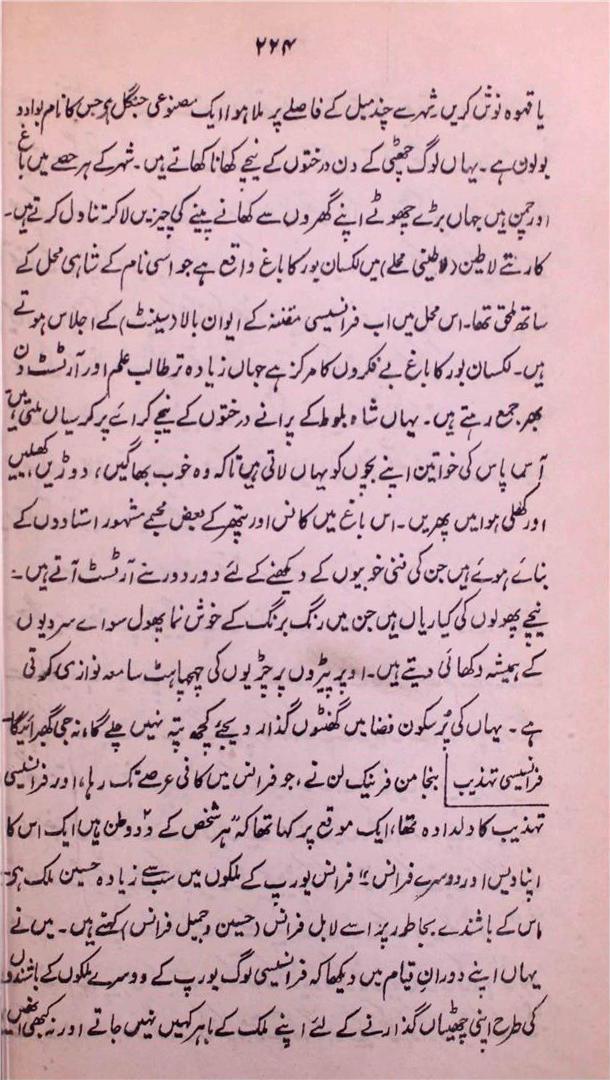 ۲۲۴
یا قہوہ نوش کریں۔ شہر سے چند میل کے فاصلے پر ملا ہوا ایک مصنوعی جنگل ہی جس کا نام بوا دو
بولون ہے۔ یہاں لوگ چھٹی کے دن درختوں کے نیچے کھانا کھاتے ہیں۔ شہر کے ہر حصے میں باغ
اور چمن ہیں جہاں بڑے چھوٹے اپنے گھروں سے کھانے پینے کی چیزیں لاکر تناول کرتے ہیں۔
کارتتے لاطین (لاطینی محلے) میں لکسان بور کا باغ واقع ہے جو اسی نام کے شاہی محل کے
ساتھ ملحق تھا۔ اس محل میں اب فرانسیسی مقننہ کے ایوان بالا (سینٹ) کے اجلاس ہوتے
ہیں۔ لکسان بور کا باغ بے فکروں کا مرکز ہے جہاں زیادہ تر طالب علم اور آرٹسٹ دن
بھر جمع رہتے ہیں۔ یہاں شاہ بلوط کے پرانے درختوں کے نیچے کرائے پر کرسیاں ملتی ہیں
آس پاس کی خواتین اپنے بچوں کو یہاں لاتی ہیں تاکہ وہ خوب بھاگیں، دوڑیں کھیلیں
اور کھلی ہوا میں پھریں۔ اس باغ میں کانس اور پتھر کے بعض مجسمے مشہور استادوں کے
بنائے ہوئے ہیں جن کی فنی خوبیوں کے دیکھنے کے لئے دور دور سے آرٹسٹ آتے ہیں۔
نیچے پھولوں کی کیاریاں ہیں جن میں رنگ برنگ کے خوش نما پھول سوائے سردیوں
کے ہمیشہ دکھائی دیتے ہیں۔ اوپر پیڑوں پر چڑیوں کی چہچہاہٹ سامعہ نوازی کرتی
ہے۔ یہاں کی پُرسکون فضا میں گھنٹوں گذار دیجئے کچھ پتہ نہیں چلے گا، نہ جی گھبرائیگا
فرانسیسی تہذیب بنجامن فرینک لن نے، جو فرانس میں کافی عرصے تک رہا، اور فرانسیسی
تہذیب کا دلدادہ تھا، ایک موقع پر کہا تھا کہ "ہر شخص کے دو وطن ہیں ایک اس کا
اپنا دیس اور دوسرے فرانس"۔ فرانس یورپ کے ملکوں میں سب سے زیادہ حسین ملک ہی۔
اس کے باشندے بجا طور پر اسے لابل فرانس (حسین و جمیل فرانس) کہتے ہیں۔ میں نے
یہاں اپنے دورانِ قیام میں دیکھا کہ فرانسیسی لوگ یورپ کے دوسرے ملکوں کے باشندوں
کی طرح اپنی چھٹیاں گذارنے کے لئے اپنے ملک کے باہر کہیں نہیں جاتے اور نہ کبھی انھیں